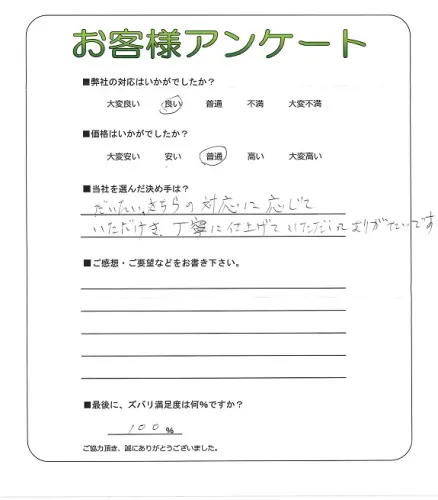 お客様アンケート
■弊社の対応はいかがでしたか？
大変良い 良い 普通 不満 大変不満
■価格はいかがでしたか？
大変安い 安い 普通 高い 大変高い
■当社を選んだ決め手は？
だいたい、きちらの対応に応じて
いただけき、丁寧に仕上げていただい ありがたいです
■ご感想・ご要望などをお書き下さい。
■最後に、ズバリ満足度は何％ですか？
100 ％
ご協力頂き、誠にありがとうございました。